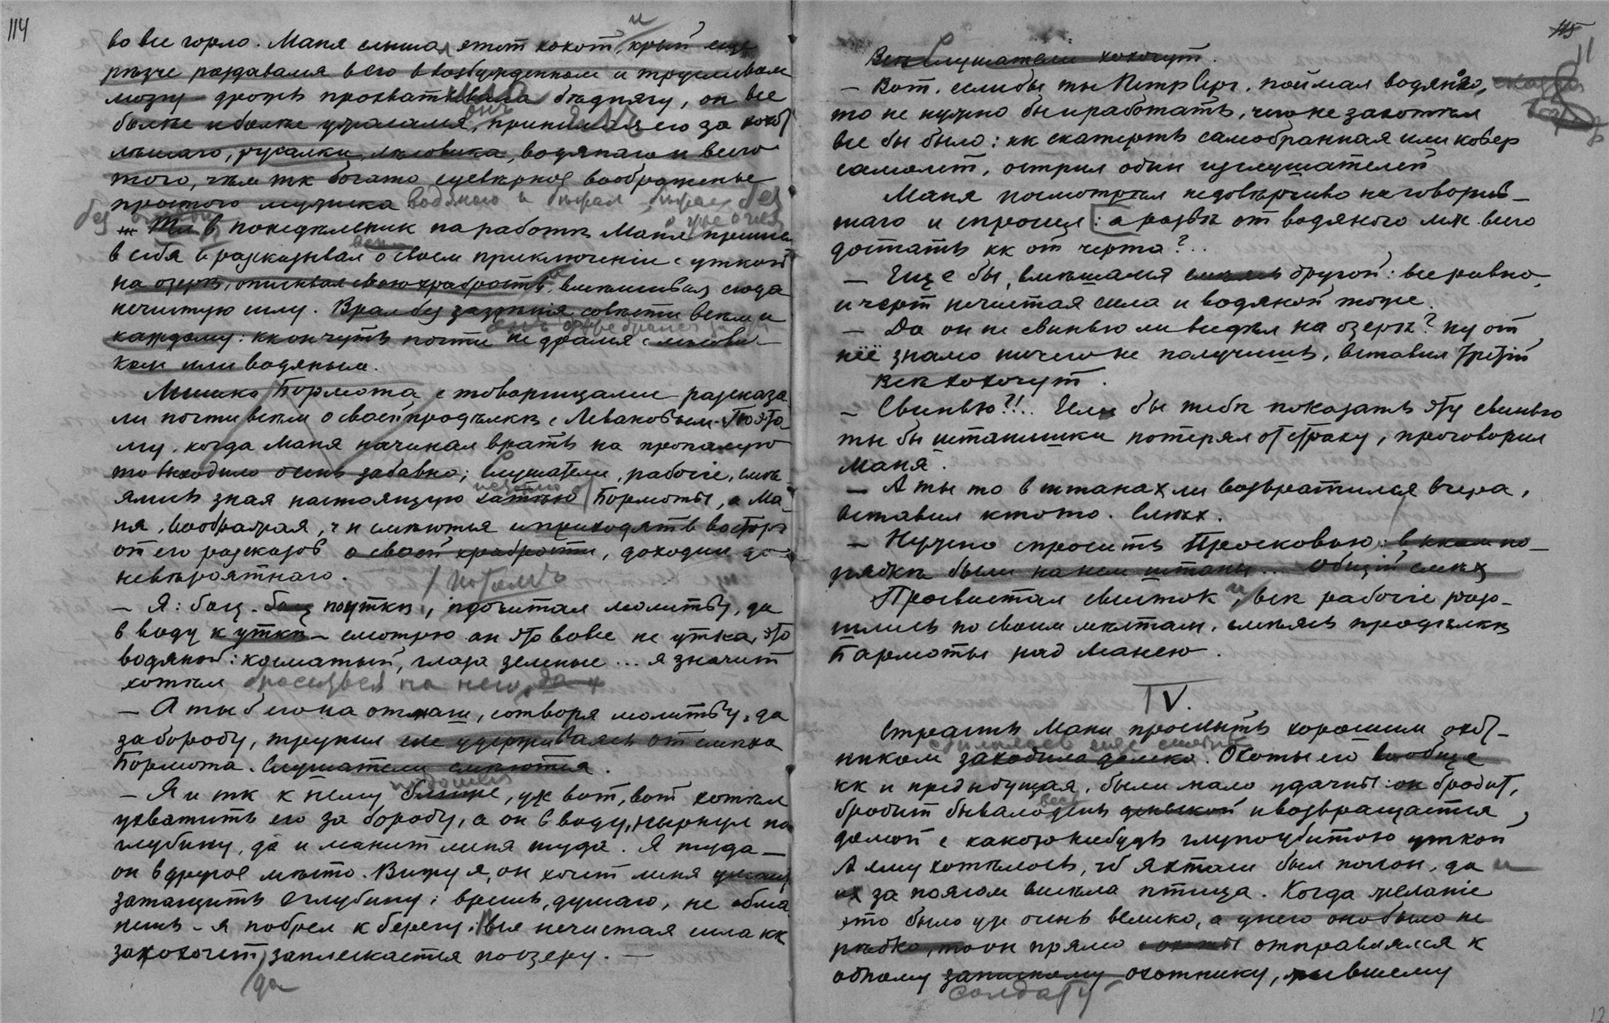 114
во все горло. Маня слышал этот хохот, крый еще
резче раздавался в его возбужденном и трусливом
мозгу дрожь прохватывала беднягу, он все
более и более ужасался, принимая его за хохот
лешаго, русалки, лесовика, водянаго и всего
того, чем тк богато суеверное воображенье
простого мужика
в понедельник на работе Маня пришел
в себя и разсказывал всем о своем приключении с уткой
на озере, описывая свою храбрость, вмешивая сюда
нечистую силу. Врал без зазрения совести всем и
каждому: как он чуть почти не дрался с лесови-
ком или водяным.
Мишка Бормота с товарищами разсказа-
ли почти всем о своей проделке с Левановым. Поэто-
му, когда Маня начинал врать на пропалую
то выходило очень забавно; Слушатели, рабочие, сме-
ялись зная настоящую Бормоты, а Ма-
ня, воображая, ч и смеются и приходят в восторг
от его разсказов о своей храбрости, доходил до
невероятнаго.
/ потом
– Я: бац - бац по утке, прочитал молитву, да
в воду к утке – смотрю ан это вовсе не утка, это
водяной: косматый, глаза зеленые ... я значит
хотел броситься на него, да
– А ты б его на отмаш, сотворя молитву, да
за бороду, трунил еле удерживаясь от смеха
Бормота. Слушатели смеются.
– Я и тк к нему ближе, уж вот, вот хотел
ухватить его за бороду, а он в воду, нырнул на
глубину, да и манит меня туда. Я туда –
он в другое место. Вижу я, он хочет меня
затащить в глубину; врешь, думаю, не обма-
нешь – я побрел к берегу. Вся нечистая сила кк
захохочет, заплескается по озеру. –
да
115
11
Все слушатели хохочут.
– Вот, если бы ты Петр Серг. поймал водяного,
то не нужно бы и работать, чего не захотел
все бы было: кк скатерть самобранная или ковер
самолет, острил один из слушателей
Маня посмотрел недоверчиво на говорив-
шаго и спросил: а разве от водяного мж всего
достать кк от черта?..
– Еще бы, вмешался другой: все равно,
и черт нечистая сила и водяной тоже.
– Да он не свинью ли видел на озере? ну от
неё знамо ничего не получишь, вставил третий
Все хохочут.
– Свинью?!!.. Если бы тебе показать эту свинью
ты бы штанишки потерял от страху, проговорил
Маня.
– А ты то в штанах ли возвратился вчера,
вставил кто то. Смех.
– Нужно спросить Просковью: в каком по-
рядке были на нем штаны... Общий смех
Просвистал свисток и все рабочие разо-
шлись по своим местам, смеясь проделке
Бармоты над Манею.
IV.
Страсть Мани прослыть хорошим охот-
ником заходила далеко. Охоты его вообще
кк и предыдущая, были мало удачны: он бродит,
бродит бывало весь день и возвращается
домой с какою нибудь глупо убитою уткой
А ему хотелось, чб ягташ был полон, да и
за поясом висела птица. Когда желание
это было уж очень велико, а у него оно было не
редко, то он прямо отправлялся к
одному записному охотнику, жившему
солдату
12